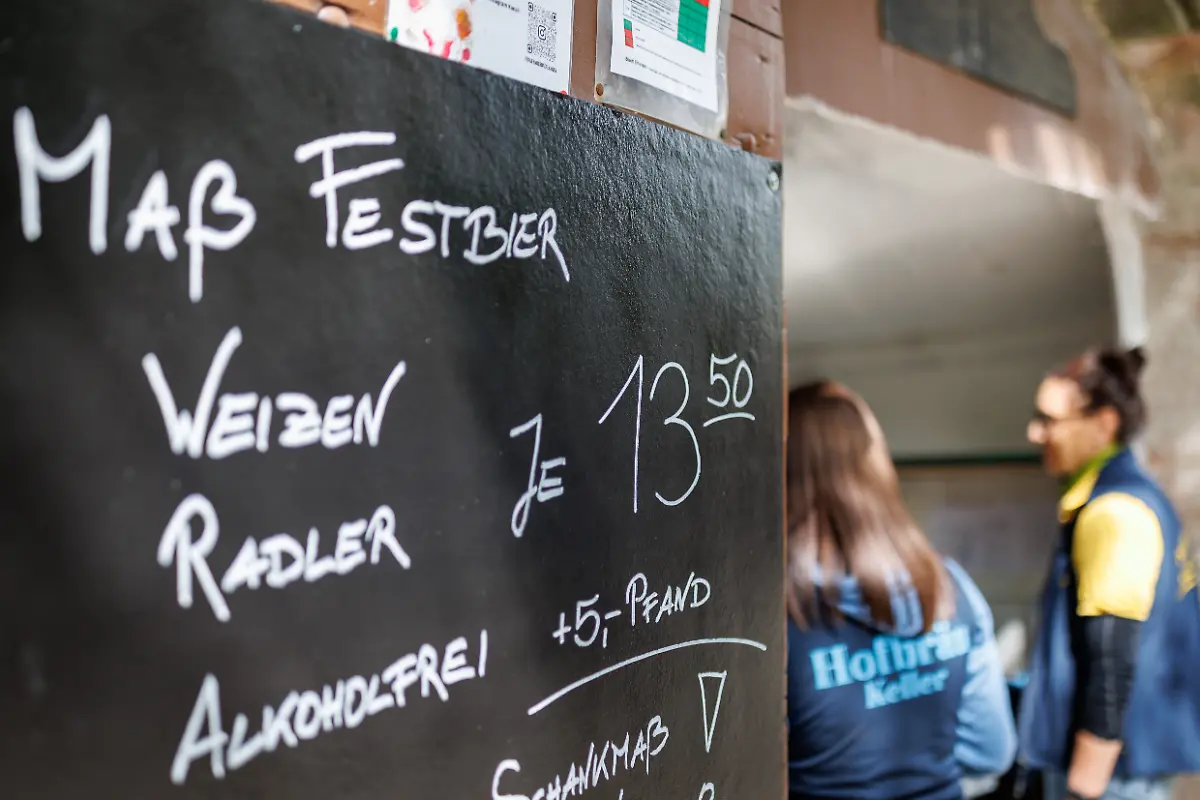 Maß Festbier
Weizen
Radler
Alkoholfrei
Je 13 50
+5,- Pfand
Schankmaß
Hofbräu
Keller